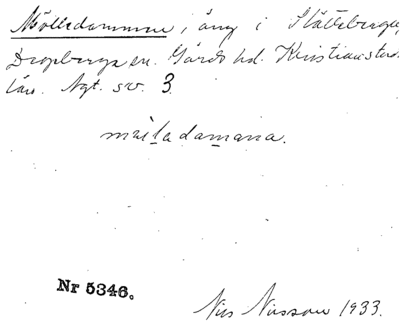 Mölledammen, i äng i Slätteberga,
Degeberga sn. Gärds hd. Kristianstads
län. Agt. sv. 3.
Nr 5346.
Nils Nilsson 1933.